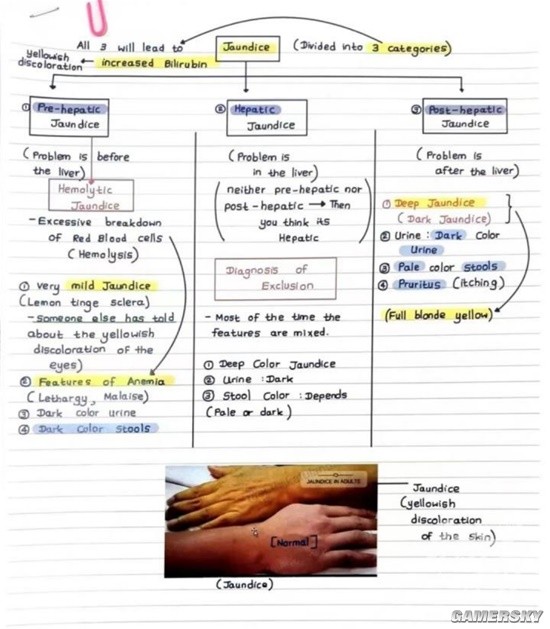 All 3 will lead to Jaundice (Divided into 3 categories)
yellowish discoloration ← increased Bilirubin
① Pre-hepatic
Jaundice
(Problem is before
the liver)
Hemolytic
Jaundice
- Excessive breakdown
of Red Blood cells
(Hemolysis)
① Very mild Jaundice
(Lemon tinge sclera)
- Someone else has told
about the yellowish
discoloration of the
eyes)
② Features of Anemia
(Lethargy, Malaise)
③ Dark color urine
④ Dark Color Stools
② Hepatic
Jaundice
(Problem is
in the liver)
(neither pre-hepatic nor
post-hepatic → Then
you think its
Hepatic)
Diagnosis of
Exclusion
- Most of the time the
features are mixed.
① Deep Color Jaundice
② Urine : Dark
③ Stool Color : Depends
(Pale or dark)
③ Post-hepatic
Jaundice
(Problem is
after the liver)
① Deep Jaundice
(Dark Jaundice)
② Urine : Dark Color
Urine
③ Pale color stools
④ Pruritus (itching)
(Full blonde yellow)
JAUNDICE IN ADULTS
[Normal]
(Jaundice)
Jaundice
(yellowish
discoloration
of the skin)
GAMERSKY